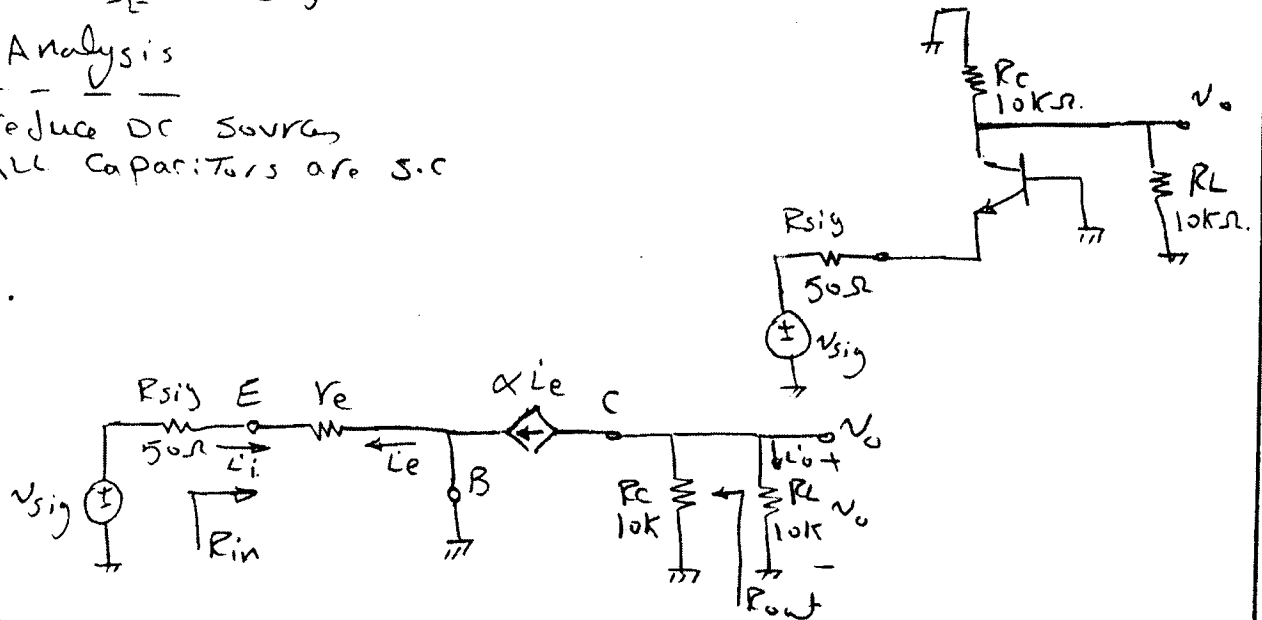 Analysis
reduce DC Sources
ALL Capacitors are S.C
RC
10KΩ.
vo
RL
10KΩ.
Rsig
50Ω
vsig
Rsig E re αie C vo
50Ω ii ie B io +
vsig Rin RC 10K RL 10K vo
-
Rout